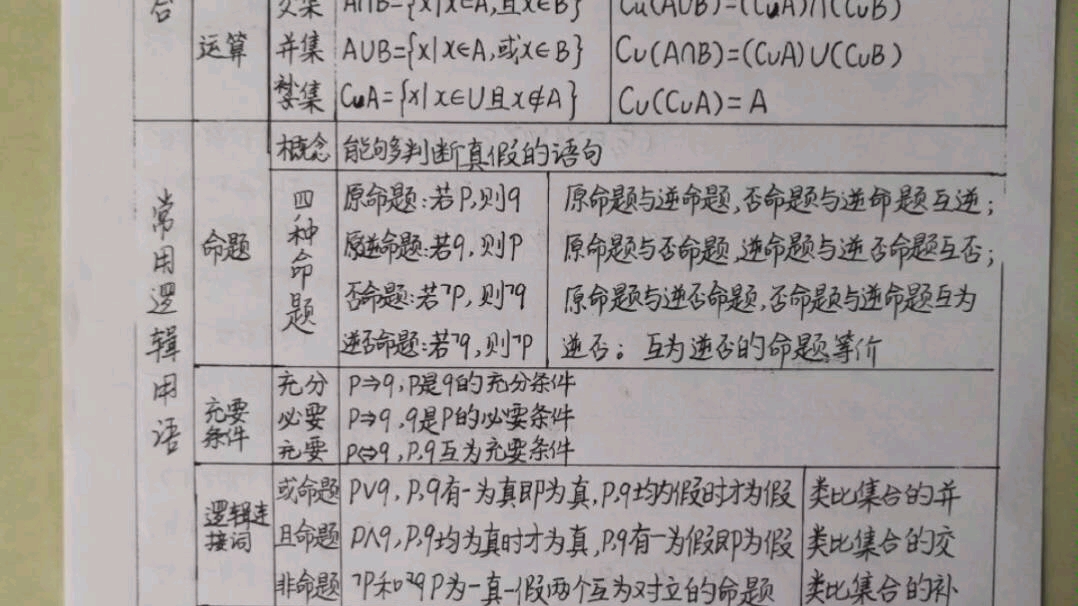 合
运算
交集 A∩B={x|x∈A,且x∈B} Cu(A∪B)=(CuA)∩(CuB)
并集 A∪B={x|x∈A,或x∈B} Cu(A∩B)=(CuA)∪(CuB)
补集 CuA={x|x∈U且x∉A} Cu(CuA)=A
常用逻辑用语
命题
概念 能够判断真假的语句
四种命题
原命题:若P,则q 原命题与逆命题,否命题与逆命题互逆;
逆命题:若q,则P 原命题与否命题,逆命题与逆否命题互否;
否命题:若¬P,则¬q 原命题与逆否命题,否命题与逆命题互为
逆否命题:若¬q,则¬P 逆否。互为逆否的命题等价
充要条件
充分 P⇒q,P是q的充分条件
必要 P⇒q,q是P的必要条件
充要 P⇔q,P,q互为充要条件
逻辑连接词
或命题 P∨q,P,q有一为真即为真,P,q均为假时才为假 类比集合的并
且命题 P∧q,P,q均为真时才为真,P,q有一为假即为假 类比集合的交
非命题 ¬P和P为一真一假两个互为对立的命题 类比集合的补